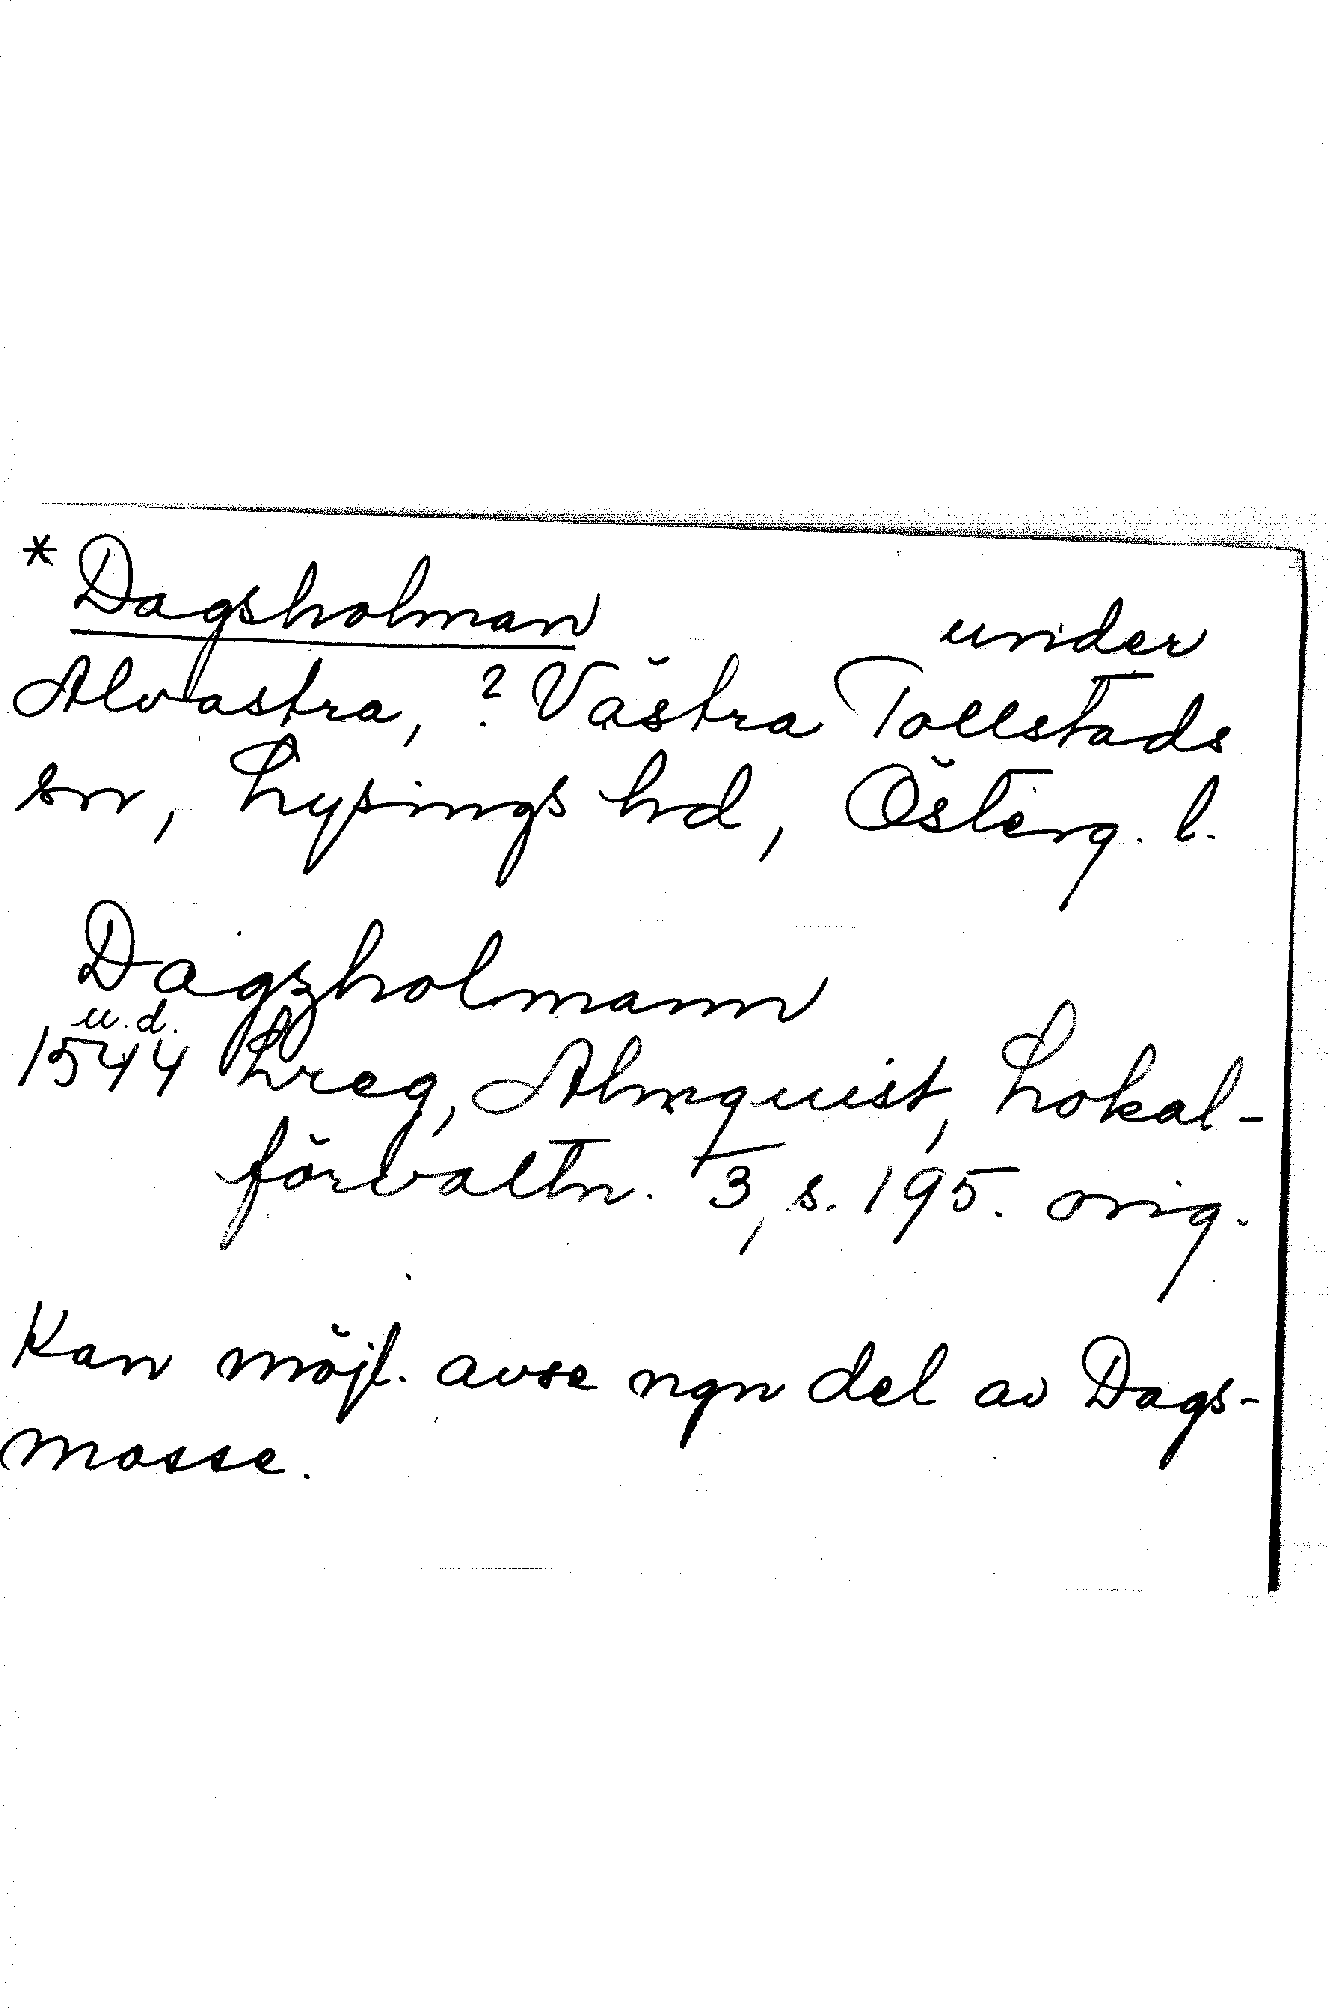 * Dagsholman under
Alvastra, ? Västra Tollstads
sn, Lysings hd, Österg. l.
Dagzholmann
u. d.
1544 Lreg, Almquist, Lokal-
förvaltn. 3, s. 195. orig.
Kan möjl. avse ngn del av Dags-
mosse.